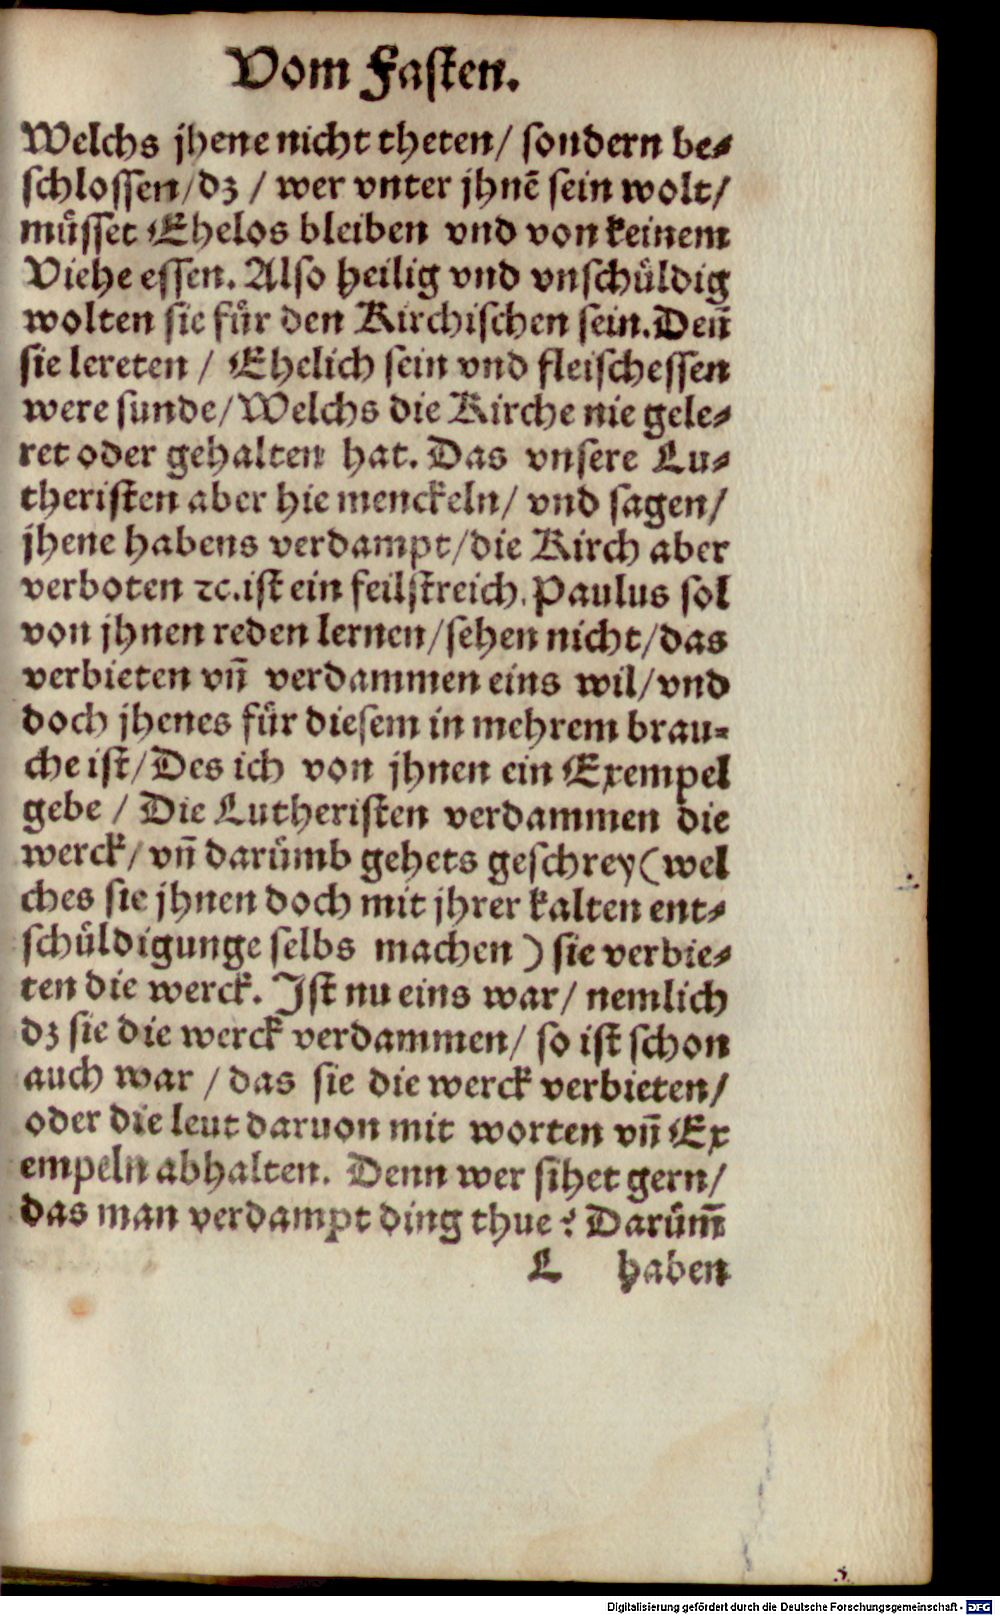 Vom Fasten.
Welchs jhene nicht theten/ sondern be⸗
schlossen/dz / wer vnter jhnē sein wolt/
muͤsset Ehelos bleiben vnd von keinem
Viehe essen. Also heilig vnd vnschuͤldig
wolten sie fuͤr den Kirchischen sein. Deñ
sie lereten / Ehelich sein vnd fleischessen
were sunde/Welchs die Kirche nie gele⸗
ret oder gehalten hat. Das vnsere Lu⸗
theristen aber hie menckeln/ vnd sagen/
jhene habens verdampt/die Kirch aber
verboten ꝛc. ist ein feilstreich. Paulus sol
von jhnen reden lernen/sehen nicht/das
verbieten vñ verdammen eins wil/vnd
doch jhenes fuͤr diesem in mehrem brau⸗
che ist/Des ich von jhnen ein Exempel
gebe / Die Lutheristen verdammen die
werck/vñ daruͤmb gehets geschrey(wel
ches sie jhnen doch mit jhrer kalten ent⸗
schuͤldigunge selbs machen ) sie verbie⸗
ten die werck. Ist nu eins war/ nemlich
dz sie die werck verdammen/ so ist schon
auch war / das sie die werck verbieten/
oder die leut daruon mit worten vñ Ex
empeln abhalten. Denn wer sihet gern/
das man verdampt ding thue? Daruͤm̃
L haben
Digitalisierung gefördert durch die Deutsche Forschungsgemeinschaft - DFG